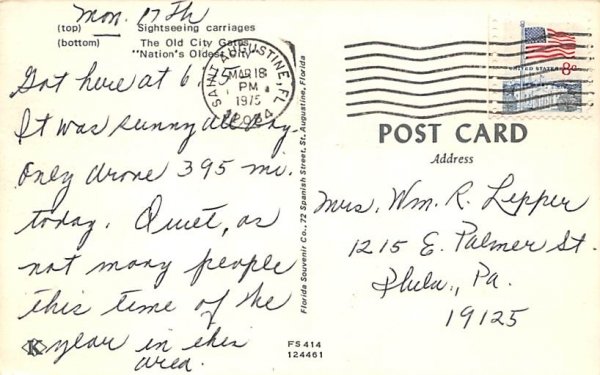 Mon. 17th
(top) Sightseeing carriages
(bottom) The Old City Gates,
"Nation's Oldest City"
Got here at 6
It was sunny all day.
Only drove 395 mi.
today. Quiet, as
not many people
this time of the
year in this
area.
K
SAINT AUGUSTINE, FL
MAR 18
PM
1975
32084
Florida Souvenir Co., 72 Spanish Street, St. Augustine, Florida
FS414
124461
UNITED STATES 8c
POST CARD
Address
Mrs. Wm. R. Lepper
1215 E. Palmer St.
Phila., Pa.
19125